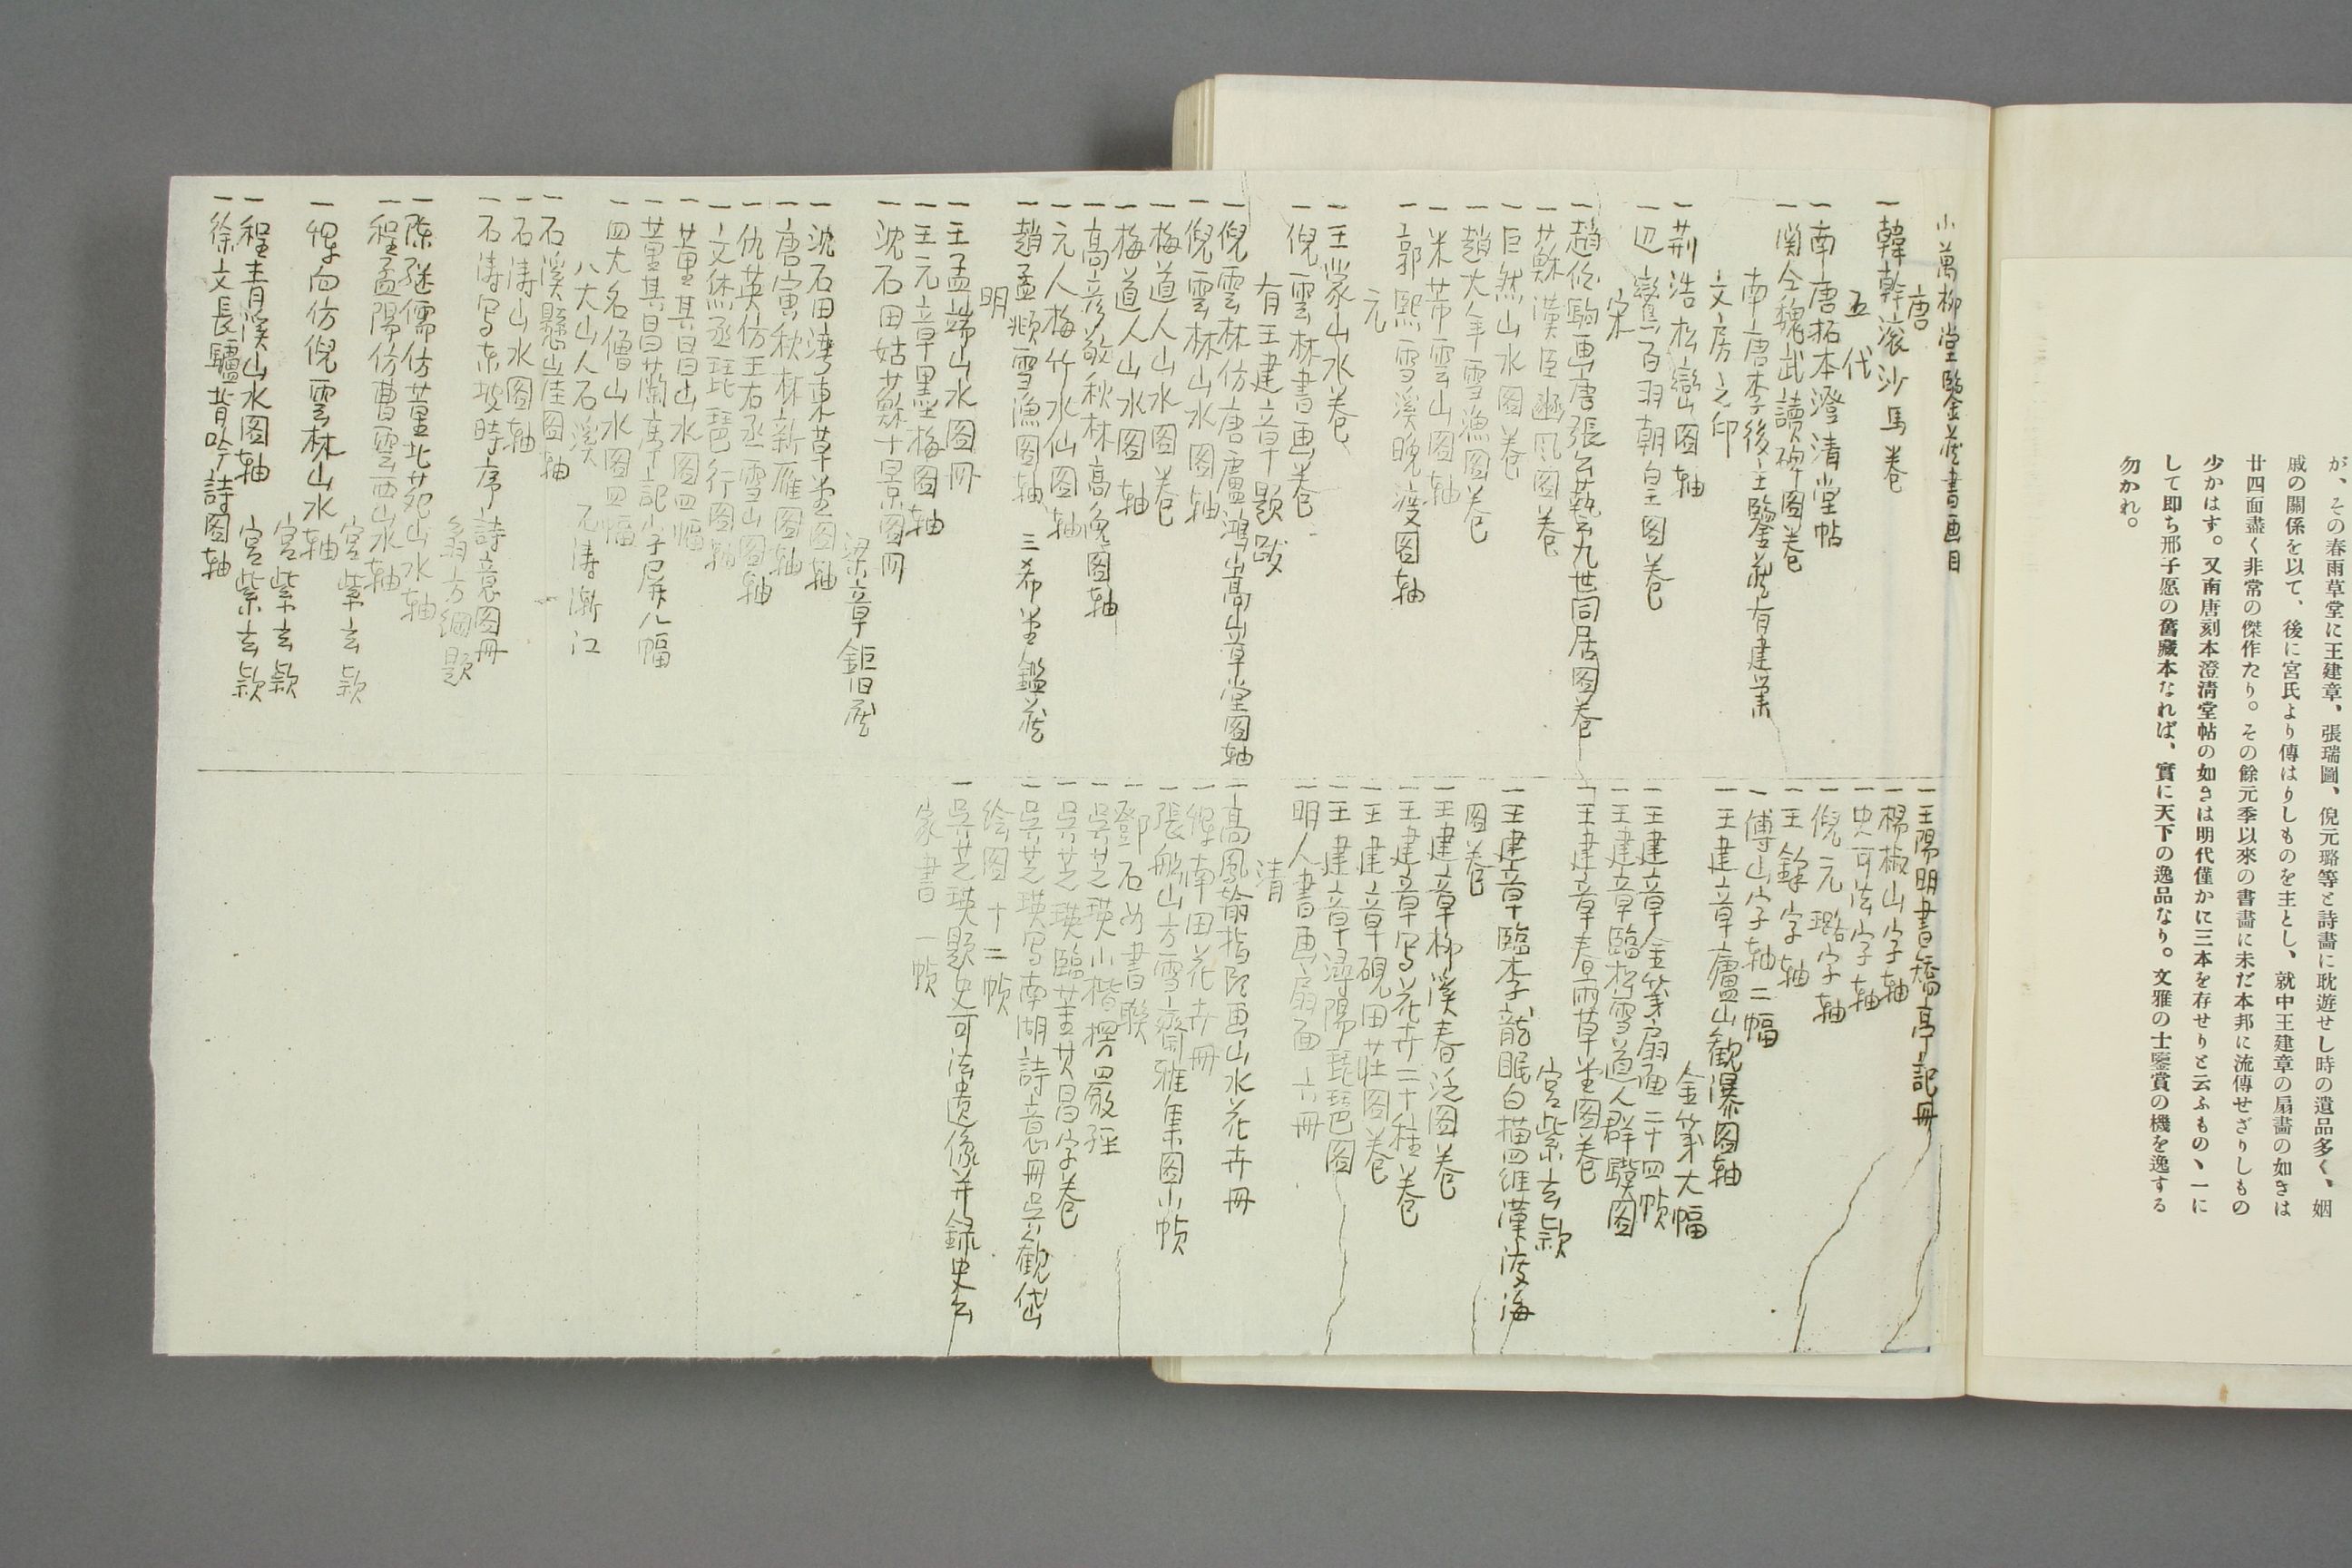 が、その春雨草堂に王建章、張瑞圖、倪元璐等と詩畫に耽遊せし時の遺品多く、姻
戚の關係を以て、後に宮氏より傳はりしものを主とし、就中王建章の扇畵の如きは
廿四面盡く非常の傑作たり。その餘元季以來の書畵に未だ本邦に流傳せざりしもの
少かはす。又南唐刻本澄清堂帖の如きは明代僅かに三本を存せりと云ふもの丶一に
して即ち邢子愿の舊藏本なれば、實に天下の逸品なり。文雅の士鑒賞の機を逸する
勿かれ。
小萬柳堂鑒藏書画目
唐
一韓幹滚沙馬卷
五代
一南唐拓本澄清堂帖
一関仝魏武讀碑图卷
南唐李後主鑒藏有建業
文房之印
一荊浩松巒图轴
一边鸞百羽朝皇图卷
宋
一趙伯駒画唐張公藝九世同居图卷
一蘇漢臣豳風图卷
一巨然山水图卷
一趙大年雪漁图卷
一米芾雲山图轴
一郭熙雪溪晚渡图轴
元
一王蒙山水卷
一倪雲林書画卷
有王建章题跋
一倪雲林仿唐盧鴻嵩山草堂图轴
一倪雲林山水图轴
一梅道人山水图卷
一梅道人山水图轴
一高彦敬秋林高逸图轴
一元人梅竹水仙图轴
一趙孟頫雪漁图轴 三希堂鑑藏
明
一王孟端山水图冊
一王元章墨梅图轴
一沈石田姑蘇十景图冊
梁章鉅旧藏
一沈石田湾東草堂图轴
一唐寅秋林新雁图轴
一仇英仿王右丞雪山图轴
一文休丞琵琶行图轴
一董其昌山水图四幅
一董其昌蘭亭記字屏八幅
一四大名僧山水图四幅
八大山人石溪 石濤漸江
一石溪懸崖图轴
一石濤山水图轴
一石濤写東坡時序詩意图冊
翁方綱题
一陈继儒仿董北苑山水轴
一程孟陽仿曹雲西山水轴
宮紫玄款
一惲向仿倪雲林山水轴
宮紫玄款
一程青溪山水图轴 宮紫玄款
一徐文長驢背吟詩图轴
一王陽明書矯亭記冊
一楊椒山字轴
一史可法字轴
一倪元璐字轴
一王鐸字轴
一傅山字轴二幅
一王建章廬山觀瀑图轴
金箋大幅
一王建章金箋扇面二十四帧
一王建章臨松雪道人群驥图
一王建章春雨草堂图卷
宮紫玄款
一王建章臨李龍眠白描四羅漢渡海
图卷
一王建章柳溪春泛图卷
一王建章写花卉二十種卷
一王建章硯田莊图卷
一王建章潯陽琵琶图
一明人書画扇面六冊
清
一高鳳翰指頭画山水花卉冊
一惲南田花卉冊
一張船山方雪齋雅集图小帧
一鄧石如書聯
一吳芝瑛小楷楞嚴經
一吳芝瑛臨董其昌字卷
一吳芝瑛写南湖詩意冊吳觀岱
绘图十二帧
一吳芝瑛题史可法遺像并録史公
家書一帧